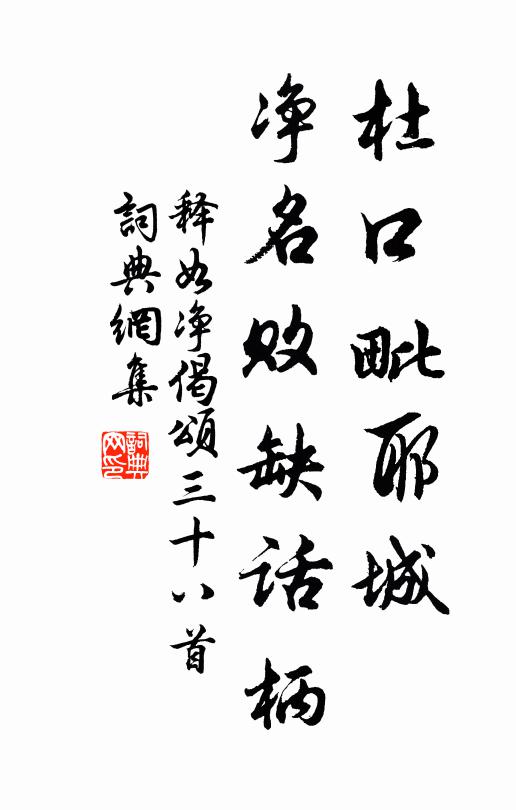 杜口毗耶城
净名败缺话柄
释如净偈颂三十八首
詞典網集
詞典网印